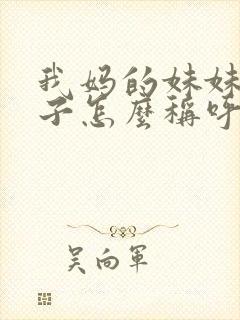 我妈的妹妹
子怎麼稱呼
吴向軍